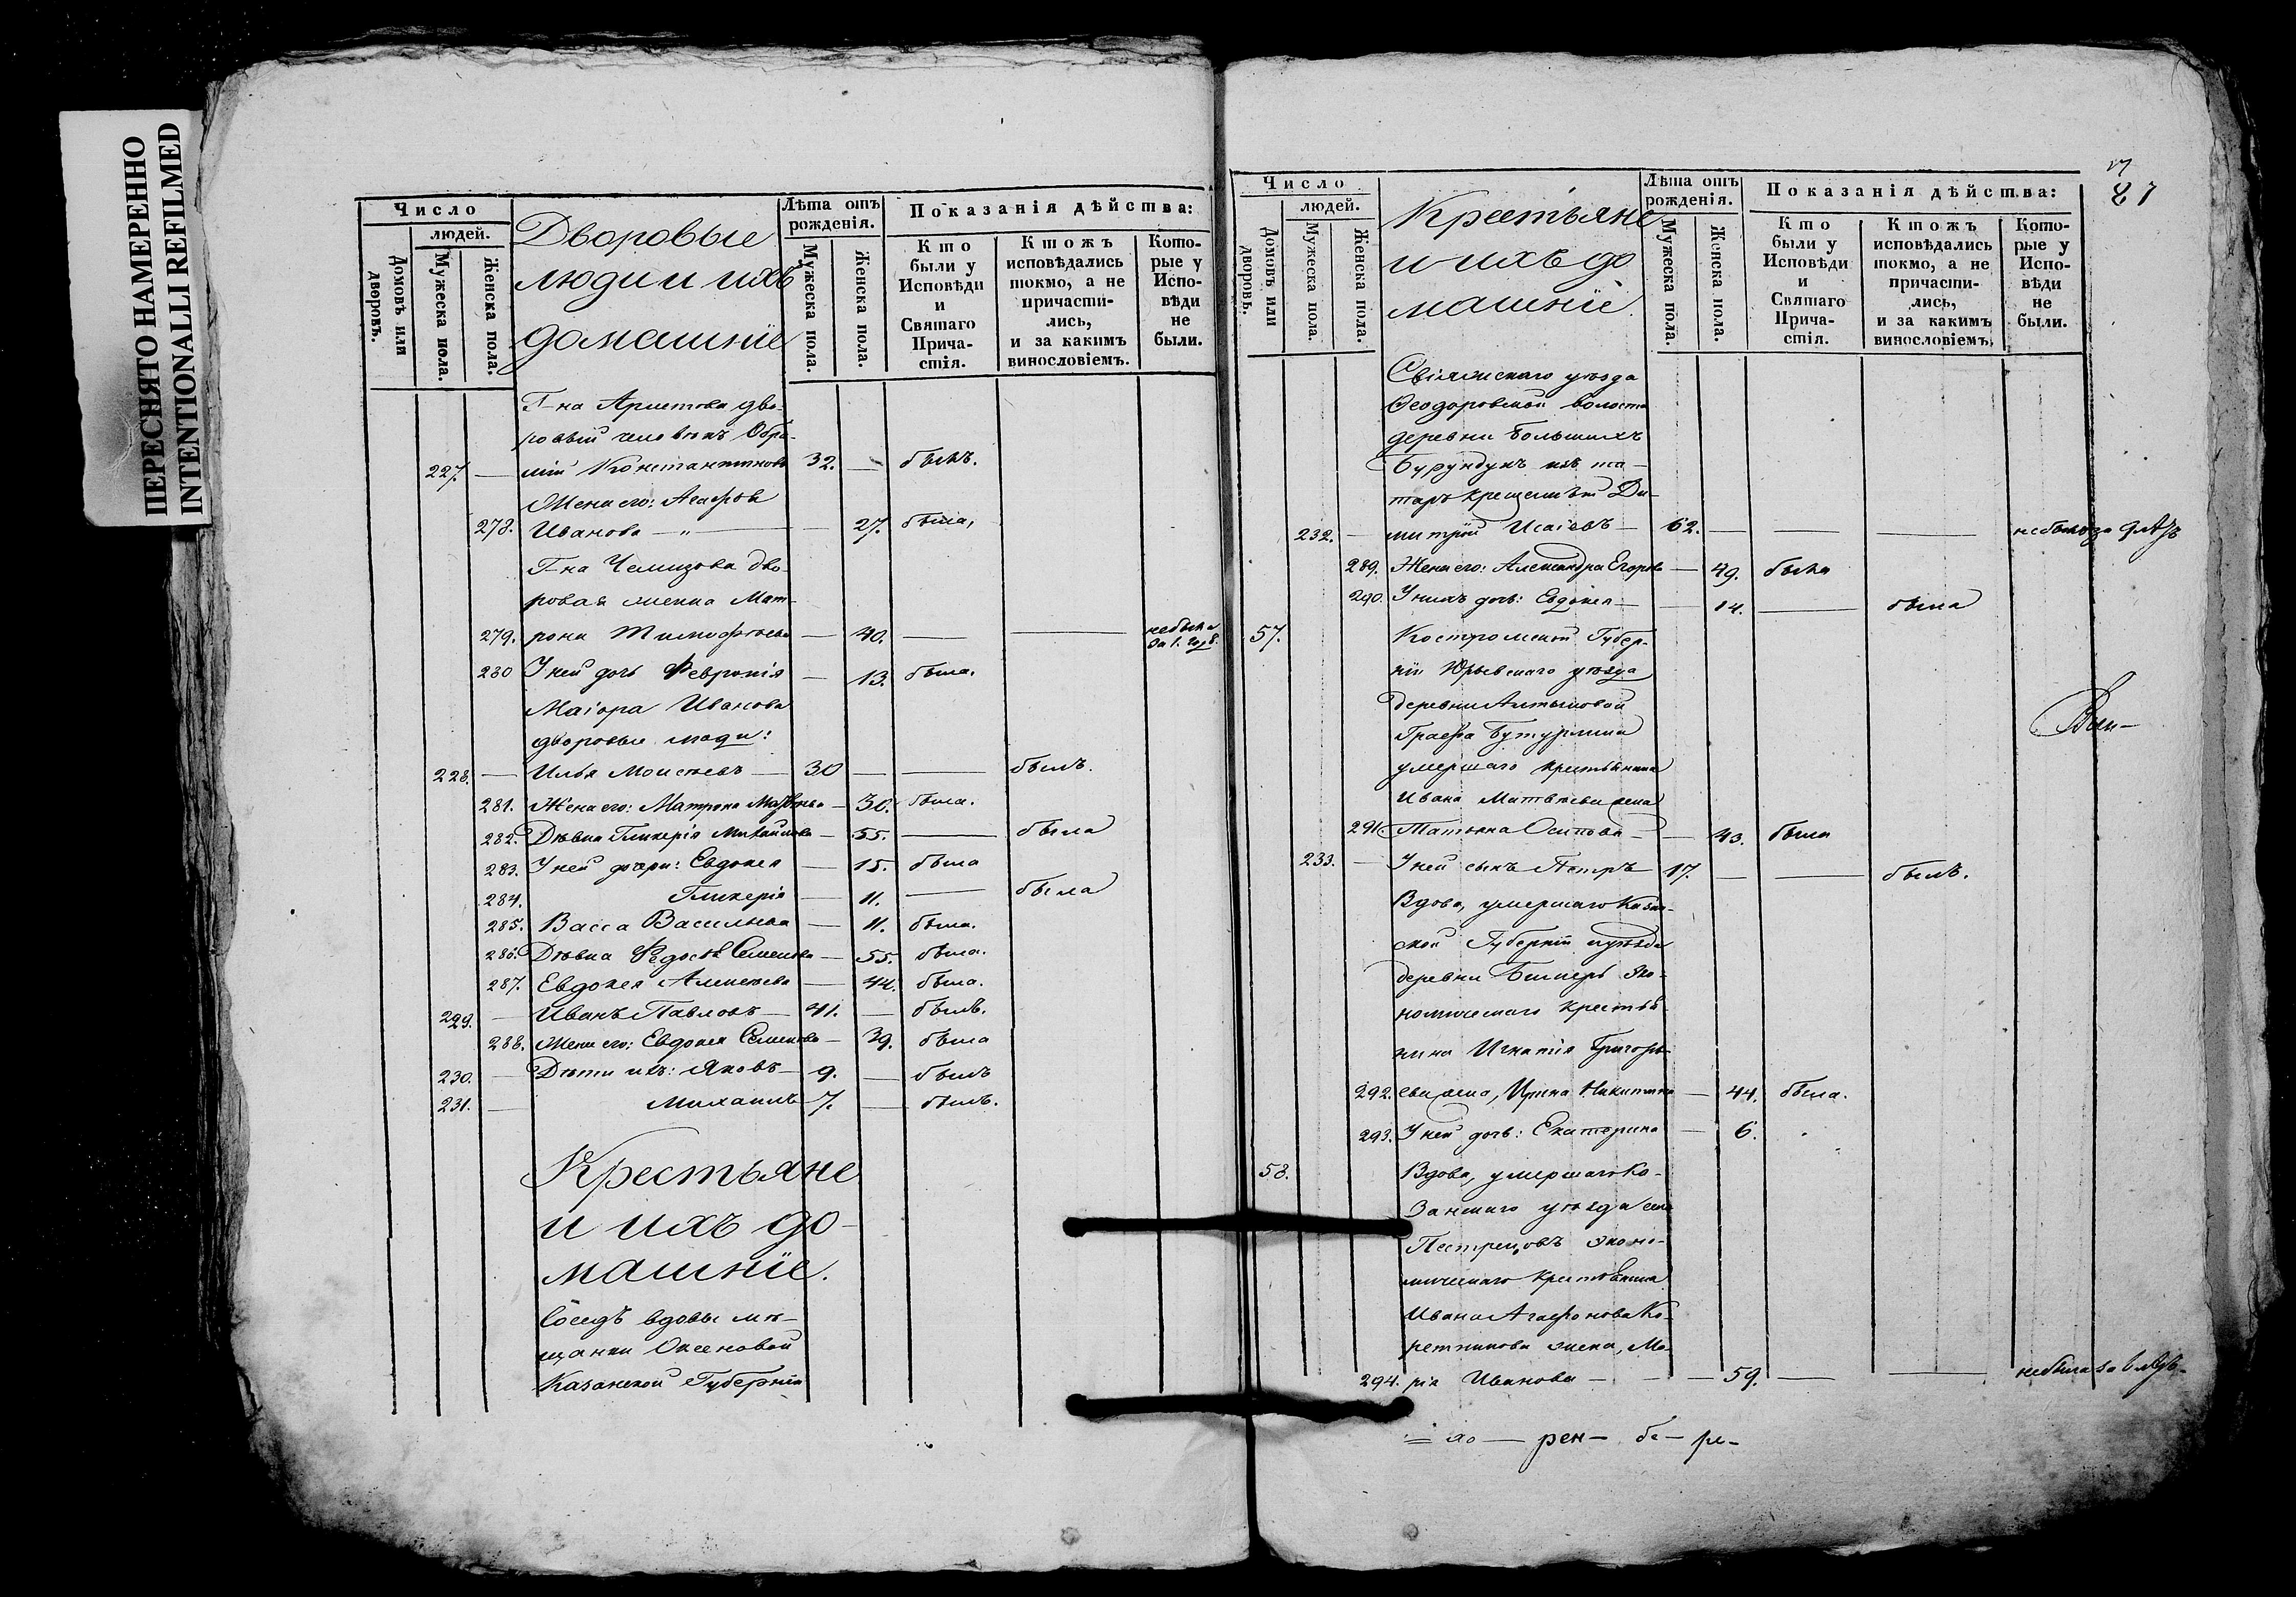 ПЕРЕСНЯТО НАМЕРЕННО
INTENTIONALLI REFILMED
Число
людей.
Домовъ или дворовъ.
Мужеска пола.
Женска пола.
Дворовые
люди и ихъ
домашніе
Лѣта отъ рожденія.
Мужеска пола.
Женска пола.
Показанія дѣйства:
Кто были у Исповѣди и Святаго Прича-стія.
Ктожъ исповѣдались токмо, а не причасти-лись, и за какимъ винословіемъ.
Кото-рые у Испо-вѣди не были.
Г-на Аристова дво-
ровый человѣкъ
227. — Константиновъ 32. — былъ.
Жена его: Агафья
278. Иванова — „ — — 27. была,
Г-на Чемизова дво-
ровая женка Мат-
279. рона Тимофѣева — 40. — — не была за 1. годъ.
280 У ней дочь Февронія — 13. была.
Маіора Иванова
дворовые люди:
228. — Илья Моисѣевъ — 30 — — былъ.
281. Жена его: Матрона — 30. была.
282. Дѣвка Гликерія Михайлова — 55. — была
283. У ней дочери: Евдокея — 15. была
284. Гликерія — 11. — была
285. Васса Васильева — 11. была.
286. Дѣвка Федосья Семенова — 55. была.
287. Евдокея Алексѣева — 44. была.
229. — Иванъ Павловъ — 41. — былъ.
288. Жена его: Евдокея Семенова — 39. была
230. — Дѣти ихъ: Яковъ — 9. — былъ
231. — Михаилъ 7. — былъ.
Крестьяне
и ихъ до-
машніе.
Соседъ вдовы мѣ-
щанки Оксеновой
Казанской Губерніи
Число
людей.
Домовъ или дворовъ.
Мужеска пола.
Женска пола.
Крестьяне
и ихъ до
машніе.
Лѣта отъ рожденія.
Мужеска пола.
Женска пола.
Показанія дѣйства:
Кто были у Исповѣди и Святаго Прича-стія.
Ктожъ исповѣдались токмо, а не причасти-лись, и за какимъ винословіемъ.
Кото-рые у Испо-вѣди не были.
87
Свіяжскаго уѣзда
Ѳеодоровской волости
деревни Большихъ
Бурундукъ изъ та-
таръ крещеныхъ Ди-
232. — митрій Исаевъ — 62. — — — не былъ за
289. Жена его: Александра Егорова — 49. была
290. У нихъ дочь: Евдокея — — 14. — была
57. Костромской Губер-
ніи Юрьевскаго уѣзда
деревни
Графа Бутурлина
умершаго крестьянина
Ивана Матвѣева жена
291. Татьяна Осипова — — 43. была
233. — У ней сынъ Петръ 17. — — былъ.
Вдова, умершаго Казан-
ской Губерніи и уѣзда
деревни Бимеръ эко-
номическаго крестья-
нина Игнатія Григорь-
292. ева жена, Ирина Никитина — 44. была.
293. У ней дочь: Екатерина — 6.
58. Вдова, умершаго Ка-
занскаго уѣзда села
Пестрецовъ эконо-
мическаго крестьянина
Ивана Агафонова Ка-
ретникова жена, Ма-
294. рія Иванова — — — 59. — — не была за
рен-